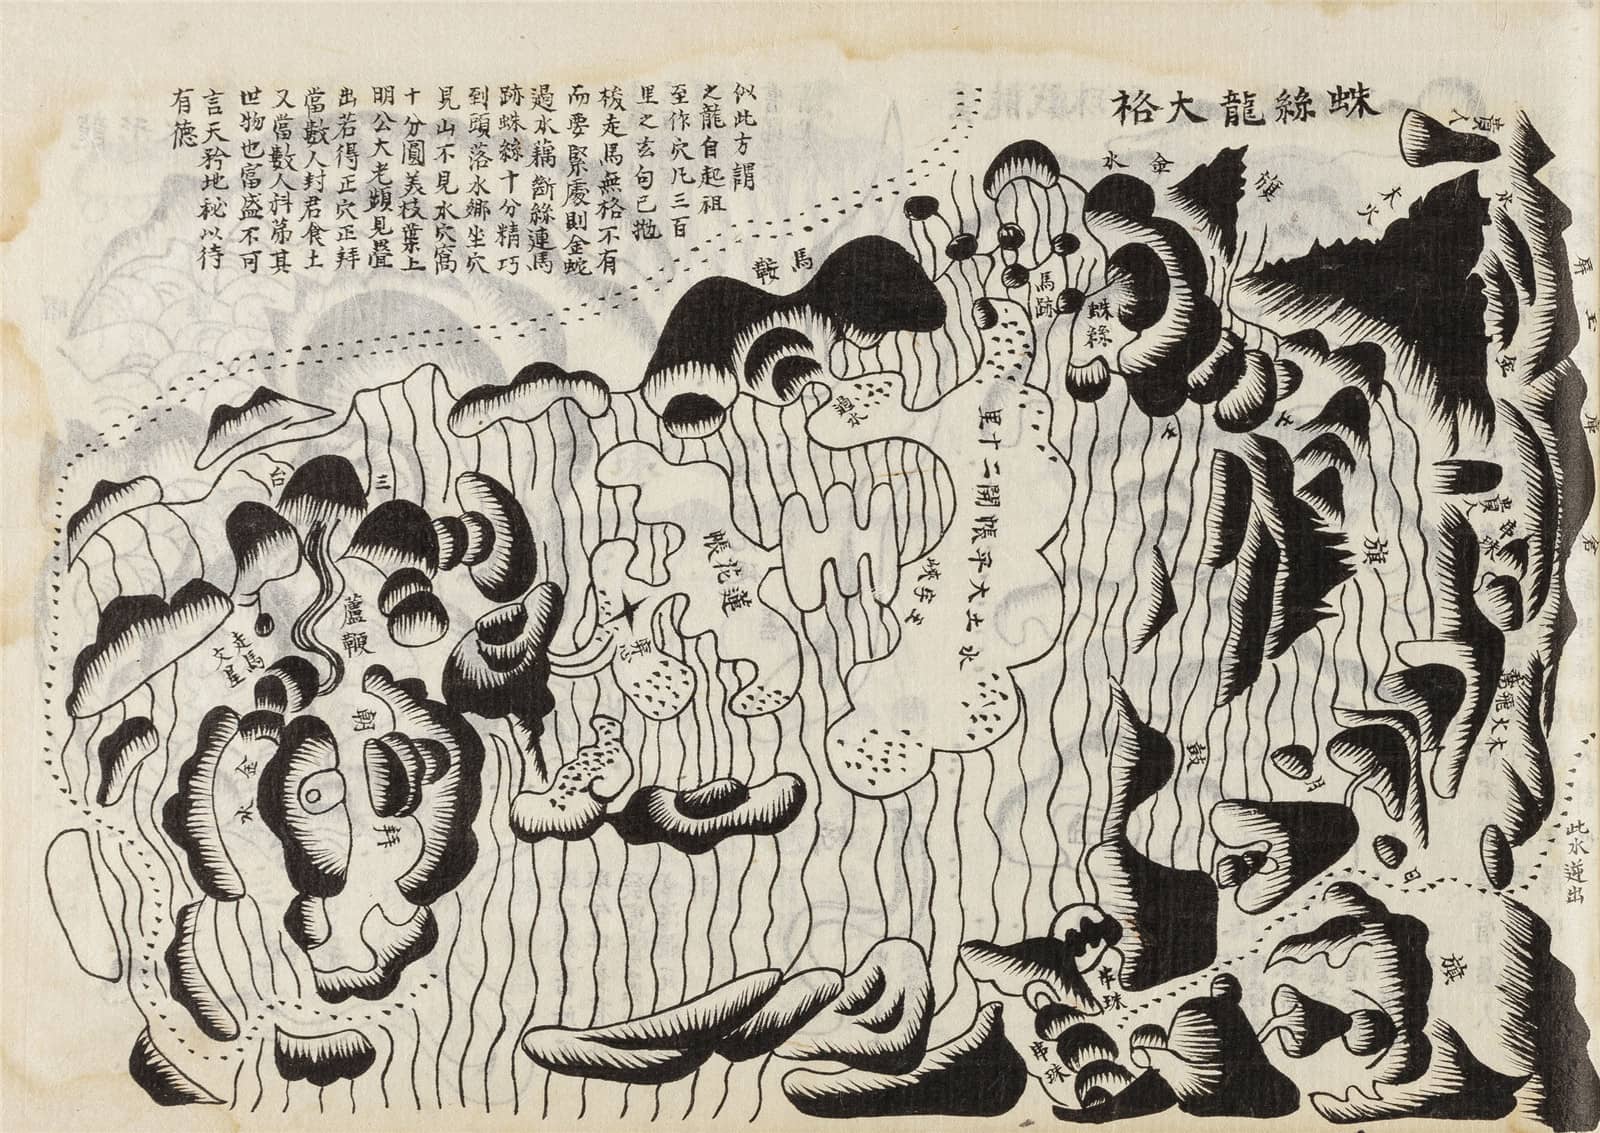 蛛絲龍大格
似此方謂
之龍自起祖
至作穴凡三百
里之玄句已拋
梭走馬無格不有
而要緊處則金蛇
過水藕斷絲連馬
跡蛛絲十分精巧
到頭落水鄉坐穴
見山不見水穴窩
十分圓美枝葉上
明公大老頭見疊
出若得正穴正拜
當數人封君食土
又當數人科第其
世物也富盛不可
言天矜地秘以待
有德
貴人
金水
旗
木火
水
屏
玉
金
庫
倉
馬鞍
馬跡
蛛絲
過水
水土大平帳開二十里
土
貴人
旗
三台
蓮花帳
王字峽
蘆鞭
走馬文星
朝
拜
金水
鼓
月
日
木火
此水逆出
旗
串珠
串珠